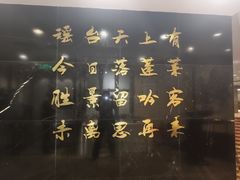 瑶台天上有
今日落蓬莱
胜景留吟客
未离思再来